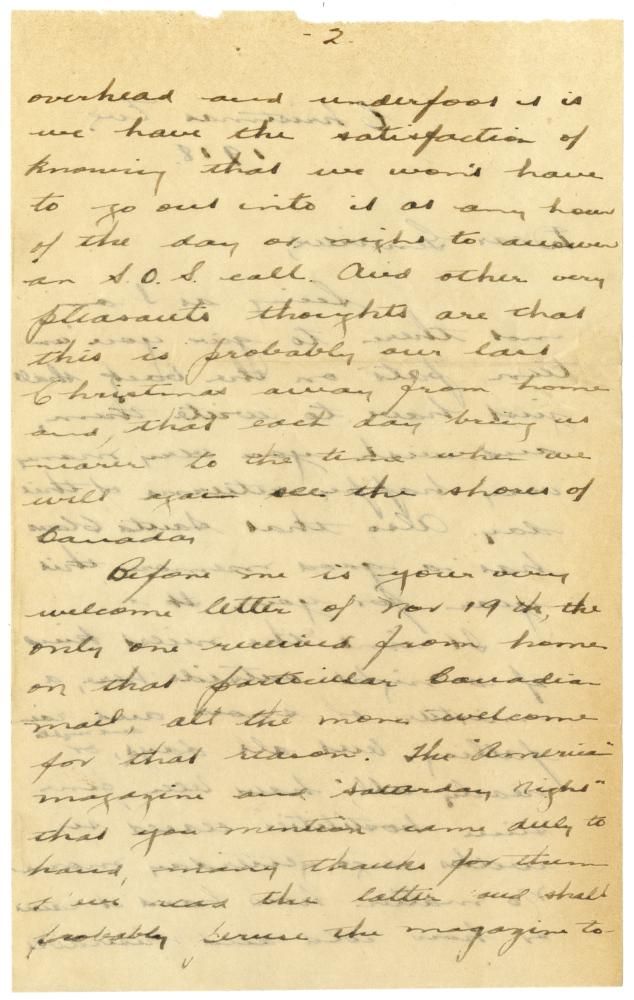 - 2 -
overhead and underfoot it is
we have the satisfaction of
knowing that we won't have
to go out into it at any hour
of the day or night to answer
an S.O.S. call. And other very
pleasants thoughts are that
this is probably our last
Christmas away from home
and, that each day brings us
nearer to the time when we
will again see the shores of
Canada.
Before me is your very
welcome letter of Nov 19th, the
only one received from home
on that particular Canadian
mail, all the more welcome
for that reason. The "America"
magazine and "Saturday Night"
that you mention came duly to
hand, many thanks for them
I've read the latter and shall
probably peruse the magazine to-